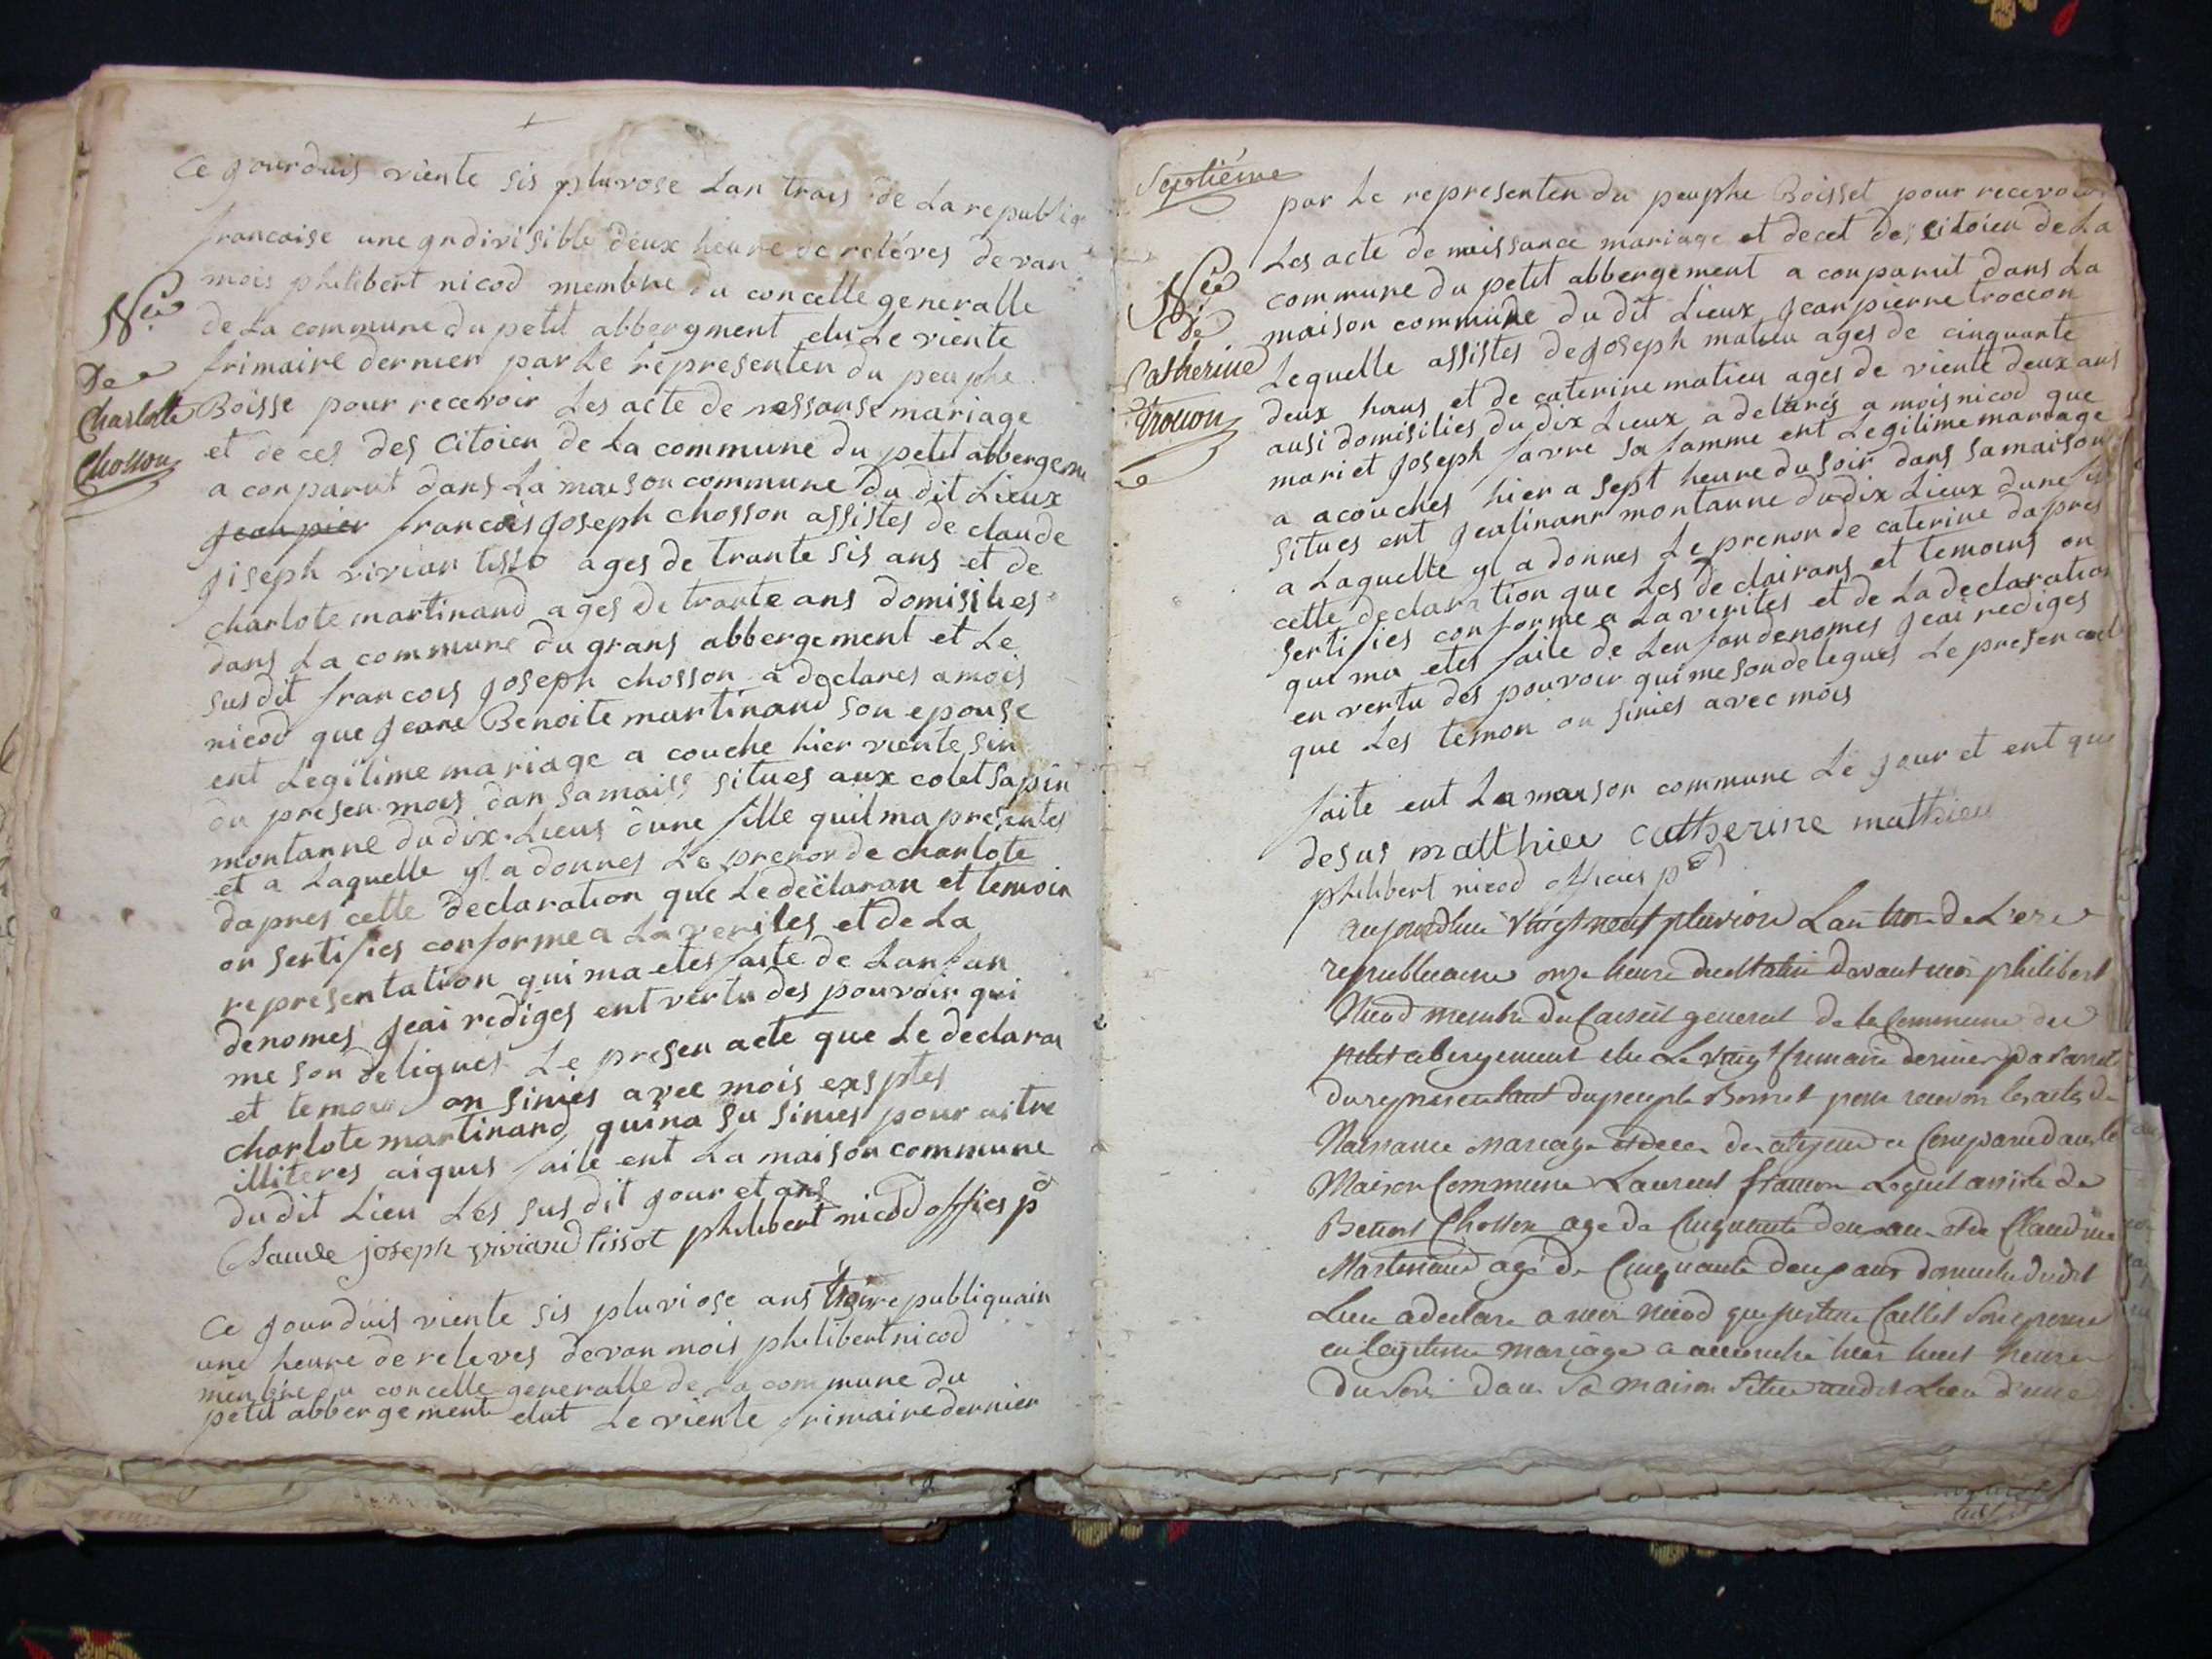 Ce jourduis viente sis pluvose Lan trais de La republiq
francaise une yndivisible deux heure de reléves devan
mois philibert nicod membre du concelle generalle
de La commune du petit abbergment elu Le viente
frimaire dernier par Le representen du peuple
Boisse pour recevoir Les acte de nessanse mariage
et de ces des Citoien de La commune du petit abbergeme
a conparut dans La maison commune du dit Lieux
jeanpier francois joseph chosson assistes de claude
Née
De
Charlotte
Chosson
joseph vivian tisso ages de trante sis ans et de
charlote martinand ages de trante ans domisilies
dans La commune du grans abbergement et Le
susdit francois joseph chosson a declares a mois
nicod que jeane Benoite martinand son epouse
ent Legitime mariage a couche hier viente sin
du presen mois dan sa maiss situes aux colet sapin
montanne du dix Lieus dune fille quil ma presentes
et a Laquelle yl a donnes Le prenon de charlote
dapres cette declaration que Le declaran et temoin
on sertifies conforme a La verites et de La
representation qui ma etes faite de Lanfan
denomes jeai rediges ent vertu des pouvoir qui
me son deligues Le presen acte que Le declaran
et temoin on sinies avec mois exsptes
charlote martinand quina su sinies pour aitre
illiteres aiques faite ent La maison commune
du dit Lieu Les susdit jour et ans
Claude joseph viviand tissot philibert nicod offies p
Ce jourduis viente sis pluviose ans trois republiquain
une heure de releves devan mois philibert nicod
membre du concelle generalle de La commune du
petit abbergement elut Le viente frimaire dernier
Septiéme
par Le representen du peuple Boisset pour recevoir
Les acte de naissance mariage et decet des citoien de La
commune du petit abbergement a conparut dans La
maison commune du dit Lieux jean pierre trocon
Née
De
Catherine
Trocon
Lequelle assistes de joseph matieu ages de cinquante
deux hans et de caterine matieu ages de viente deux ans
ausi domisilies du dix Lieux a delarés a mois nicod que
mariet joseph favre sa famme ent Legitime mariage
a acouches hier a sept heure du soir dans sa maison
situes ent jealinant montanne du dix Lieux dune fil
a Laquelle yl a donnes Le prenon de caterine dapres
cette declaration que Les declairans et temoins on
sertifies conforme a La verites et de La declaration
qui ma etes faite de Lenfan denomes jeai rediges
en vertu des pouvoir qui me son delegues Le presen acte
que Les temon on sinies avec mois
faite ent La maison commune Le jour et ent que
desus matthieu catherine matthieu
philibert nicod officies p
aujourdhui vingt neuf pluviose Lan trois de L'ere
republicaine onze heure du Matin devant moi philibert
Nicod membre du Conseil general de la Commune du
petit abergement elu Le vingt frimaire dernier par arret
du representant du peuple Boisset pour recevoir les actes de
Naissance mariage et deces des citoyens a Comparu dans la
Maison Commune Laurent Lequel assiste de
Benoit Chosson age de Cinquante deux ans et de Claudine
Martinand agé de Cinquante deux ans domicilie dudit
Lieu a declare a moi nicod que justine Caillet son epouse
en legitime mariage a accouche hier huit heures
du soir dans sa maison situe audit Lieu d'une